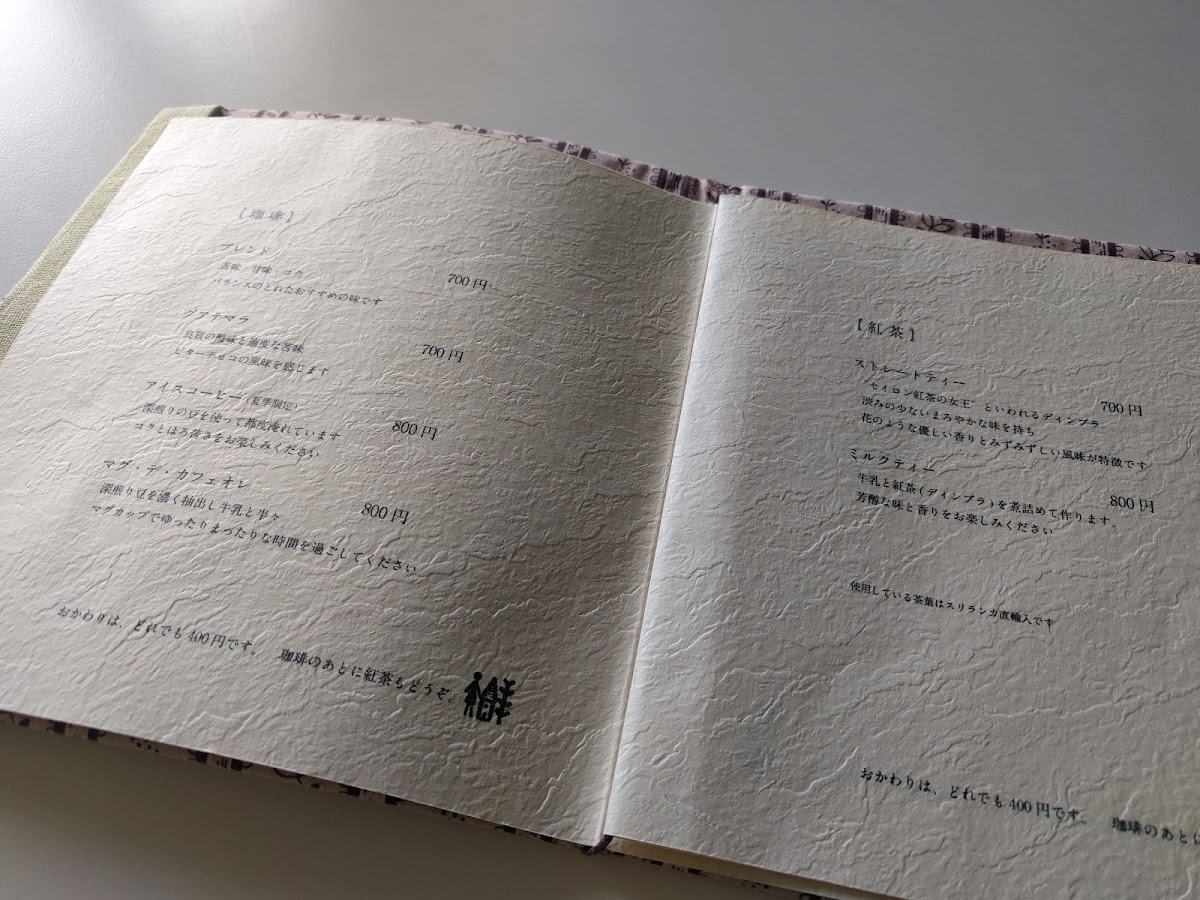 【珈琲】
ブレンド
苦味 甘味 コク
700円
バランスのとれたおすすめの味です
グアテマラ
良質の酸味と適度な苦味
700円
ビターチョコの風味を感じます
アイスコーヒー(夏季限定)
深煎りの豆を使って都度淹れています
800円
コクとほろ苦さをお楽しみください
マグ・デ・カフェオレ
深煎り豆を濃く抽出し牛乳と半々
800円
マグカップでゆったりまったりな時間を過ごしてください
おかわりは、どれでも400円です。 珈琲のあとに紅茶もどうぞ。
【紅茶】
ストレートティー
700円
"セイロン紅茶の女王"といわれるディンブラ
渋みの少ないまろやかな味を持ち
花のような優しい香りとみずみずしい風味が特徴です
ミルクティー
800円
牛乳と紅茶(ディンブラ)を煮詰めて作ります。
芳醇な味と香りをお楽しみください
使用している茶葉はスリランカ直輸入です
おかわりは、どれでも400円です。 珈琲のあとに